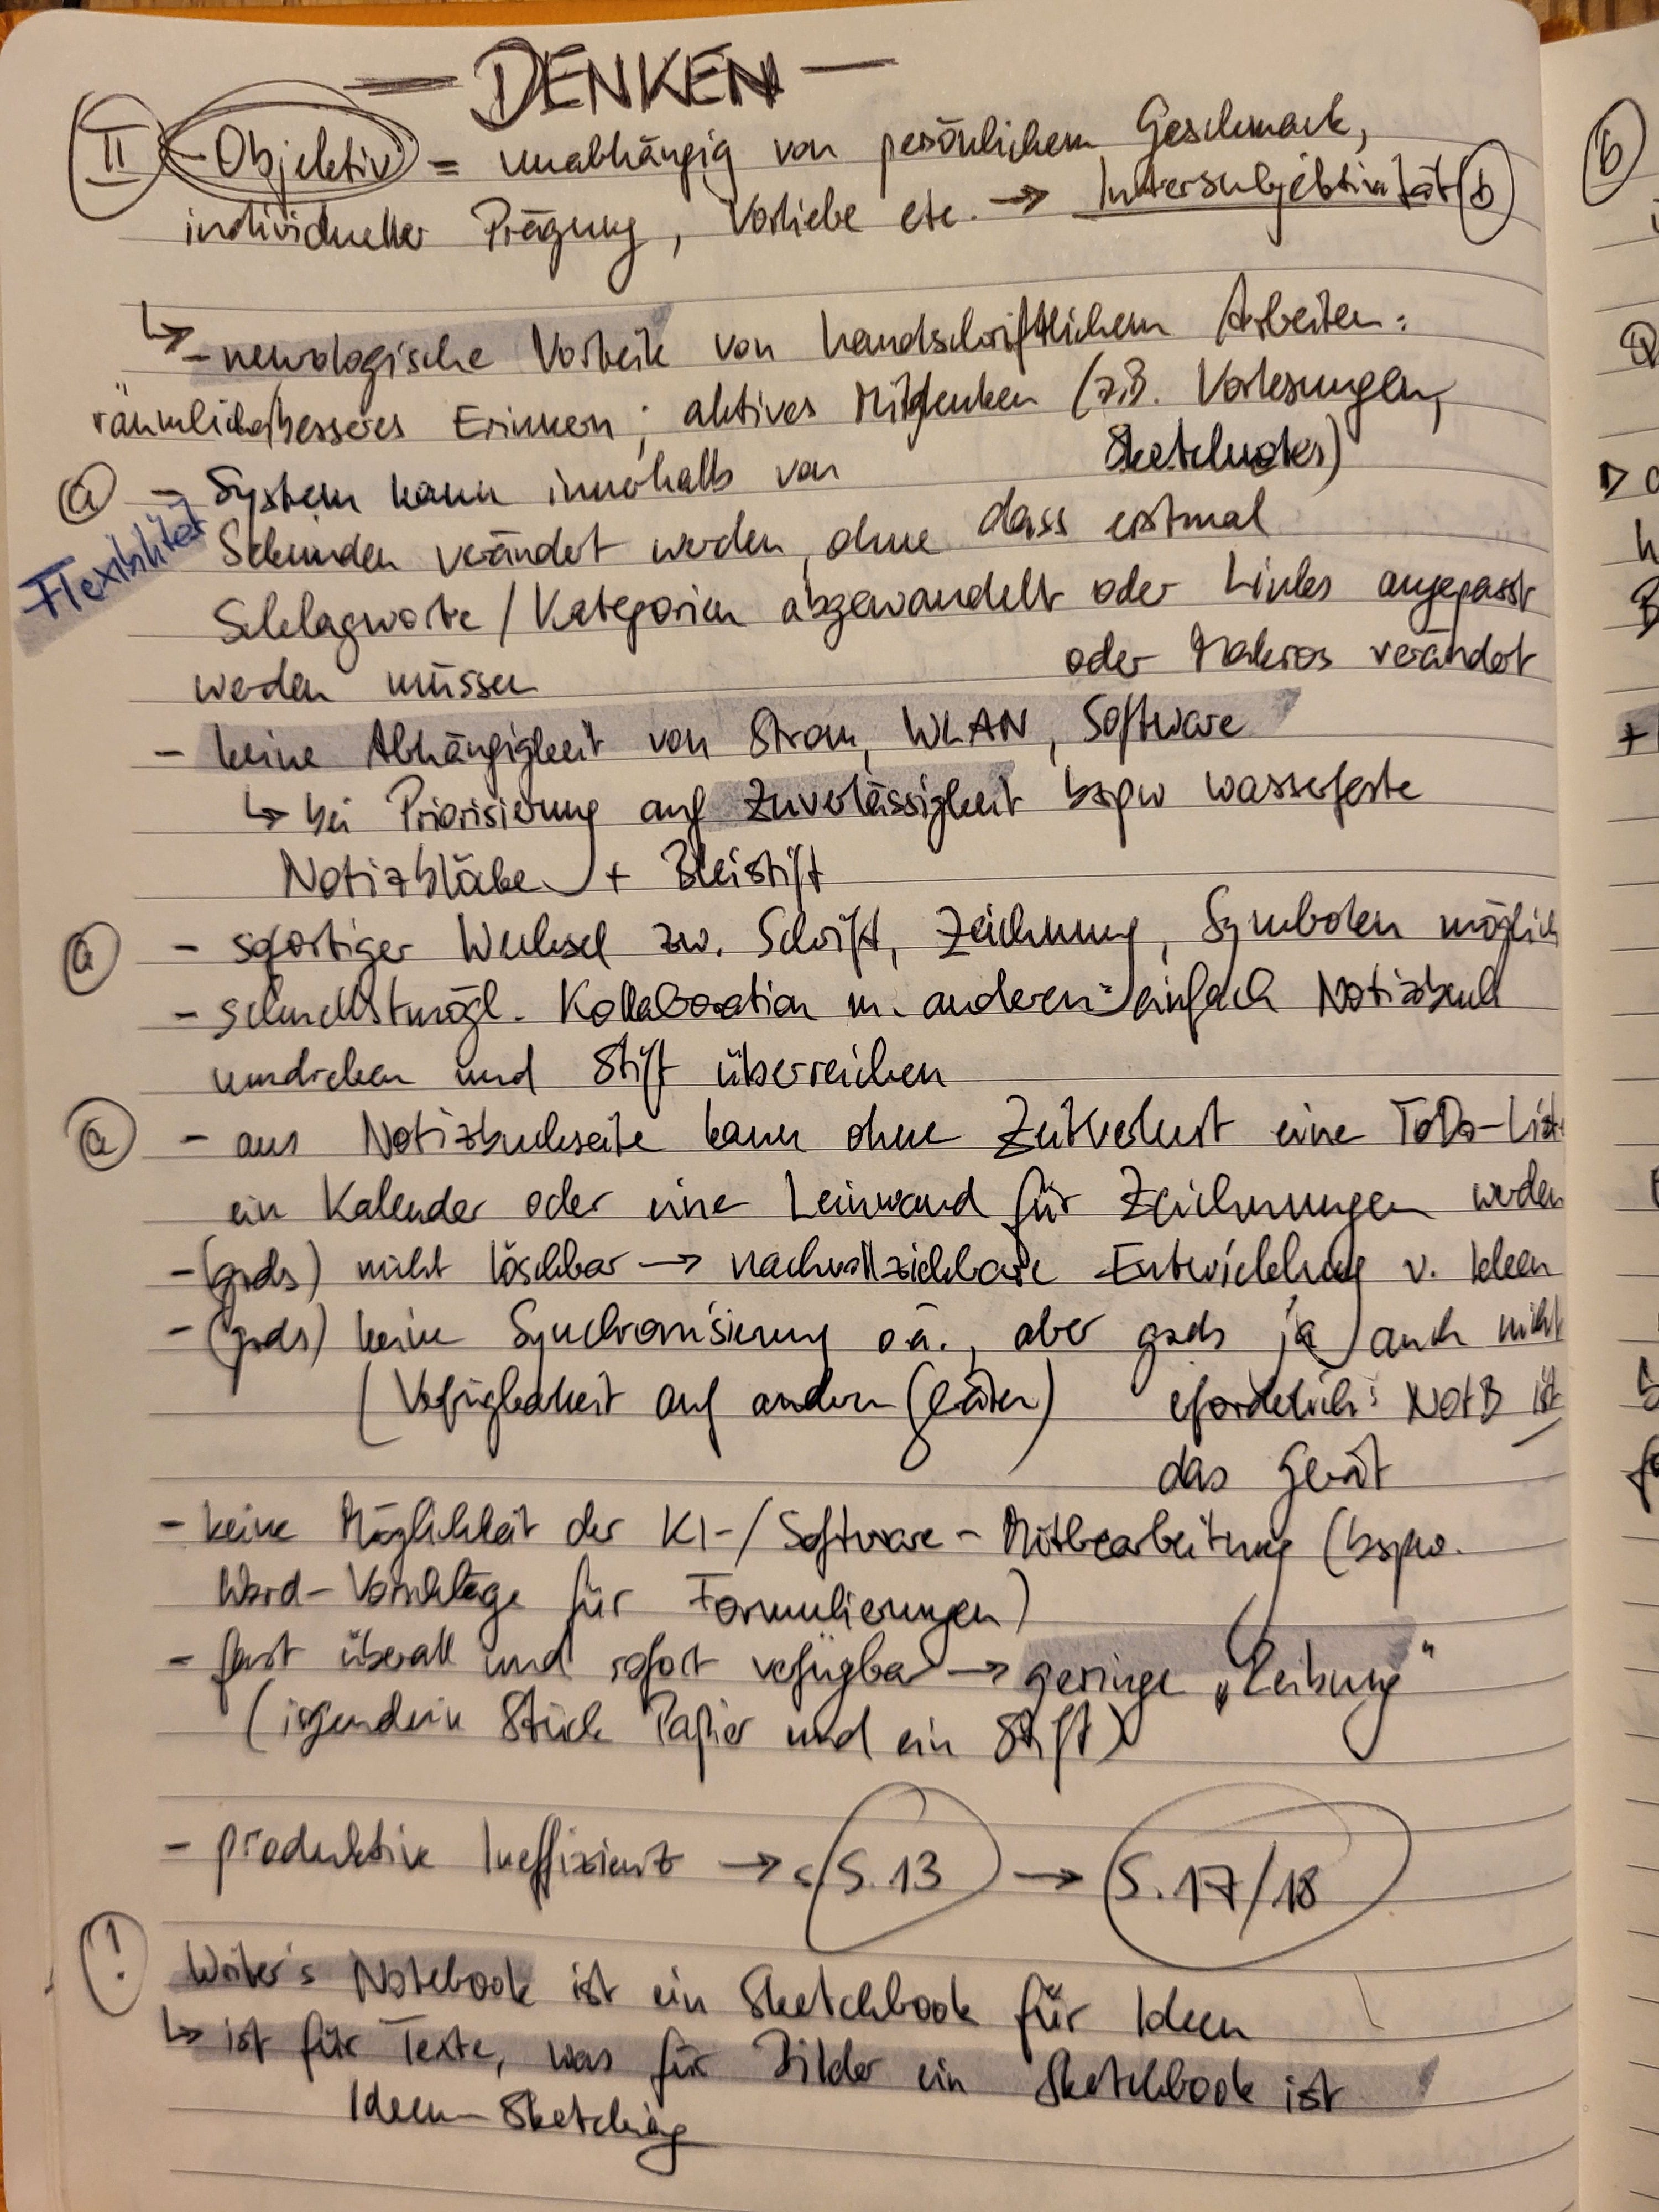 — DENKEN —
II - Objektiv = unabhängig von persönlichem Geschmack,
individueller Prägung, Vorliebe etc. → Intersubjektivität (b)
↳ - neurologische Vorteile von handschriftlichem Arbeiten:
räumlich/besseres Erinnern; aktives Mitdenken (z.B. Vorlesungen,
Sketchnotes)
a - System kann innerhalb von
Flexibilität
Sekunden verändert werden, ohne dass erstmal
Schlagworte / Kategorien abgewandelt oder Links angepasst
oder Makros verändert
werden müssen
- keine Abhängigkeit von Strom, WLAN, Software
↳ bei Priorisierung auf Zuverlässigkeit bspw wasserfeste
Notizblöcke + Bleistift
a - sofortiger Wechsel zw. Schrift, Zeichnung, Symbolen möglich
- schnellstmögl. Kollaboration m. anderen: einfach Notizbuch
umdrehen und Stift überreichen
a - aus Notizbuchseite kann ohne Zeitverlust eine ToDo-Liste
ein Kalender oder eine Leinwand für Zeichnungen werden
- (grds) nicht löschbar → nachvollziehbare Entwicklung v. Ideen
- (grds) keine Synchronisierung o.ä., aber grds ja auch nicht
(Verfügbarkeit auf anderen Geräten) erforderlich: NotB ist
das Gerät
- keine Möglichkeit der KI-/Software-Mitbearbeitung (bspw.
Word-Vorschläge für Formulierungen)
- fast überall und sofort verfügbar → geringe „Reibung"
(irgendein Stück Papier und ein Stift)
- produktive Ineffizienz → S. 13 → S. 17/18
! Writer's Notebook ist ein Sketchbook für Ideen
↳ ist für Texte, was für Bilder ein Sketchbook ist
Ideen-Sketching